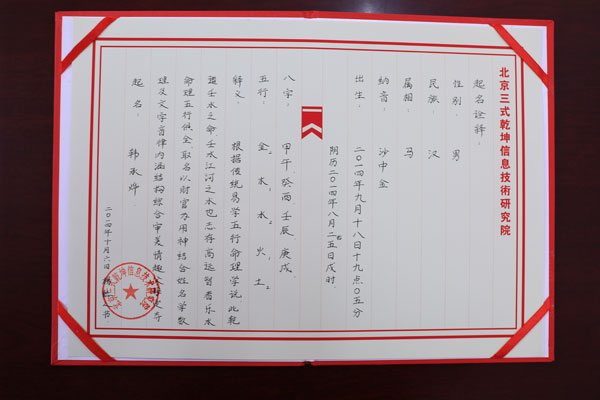 北京三式乾坤信息技術研究院
起名詮釋
性別：男
民族：汉
属相：马
納音：沙中金
出生：二〇一四年九月十八日十九点〇五分
阴历二〇一四年八月二五日戊时
八字：甲午 癸酉 壬辰 庚戌
五行：金2 木2 水2 火1 土2
释义 根据传统易学五行命理学说此乾
造壬水之命壬水江河之水也志存高远智者乐水
命理五行俱全取名以财官为用神结合姓名学数
理及文字音律内涵结构综合审美情趣
起名：韩承烨
二〇一四年十月六日 书